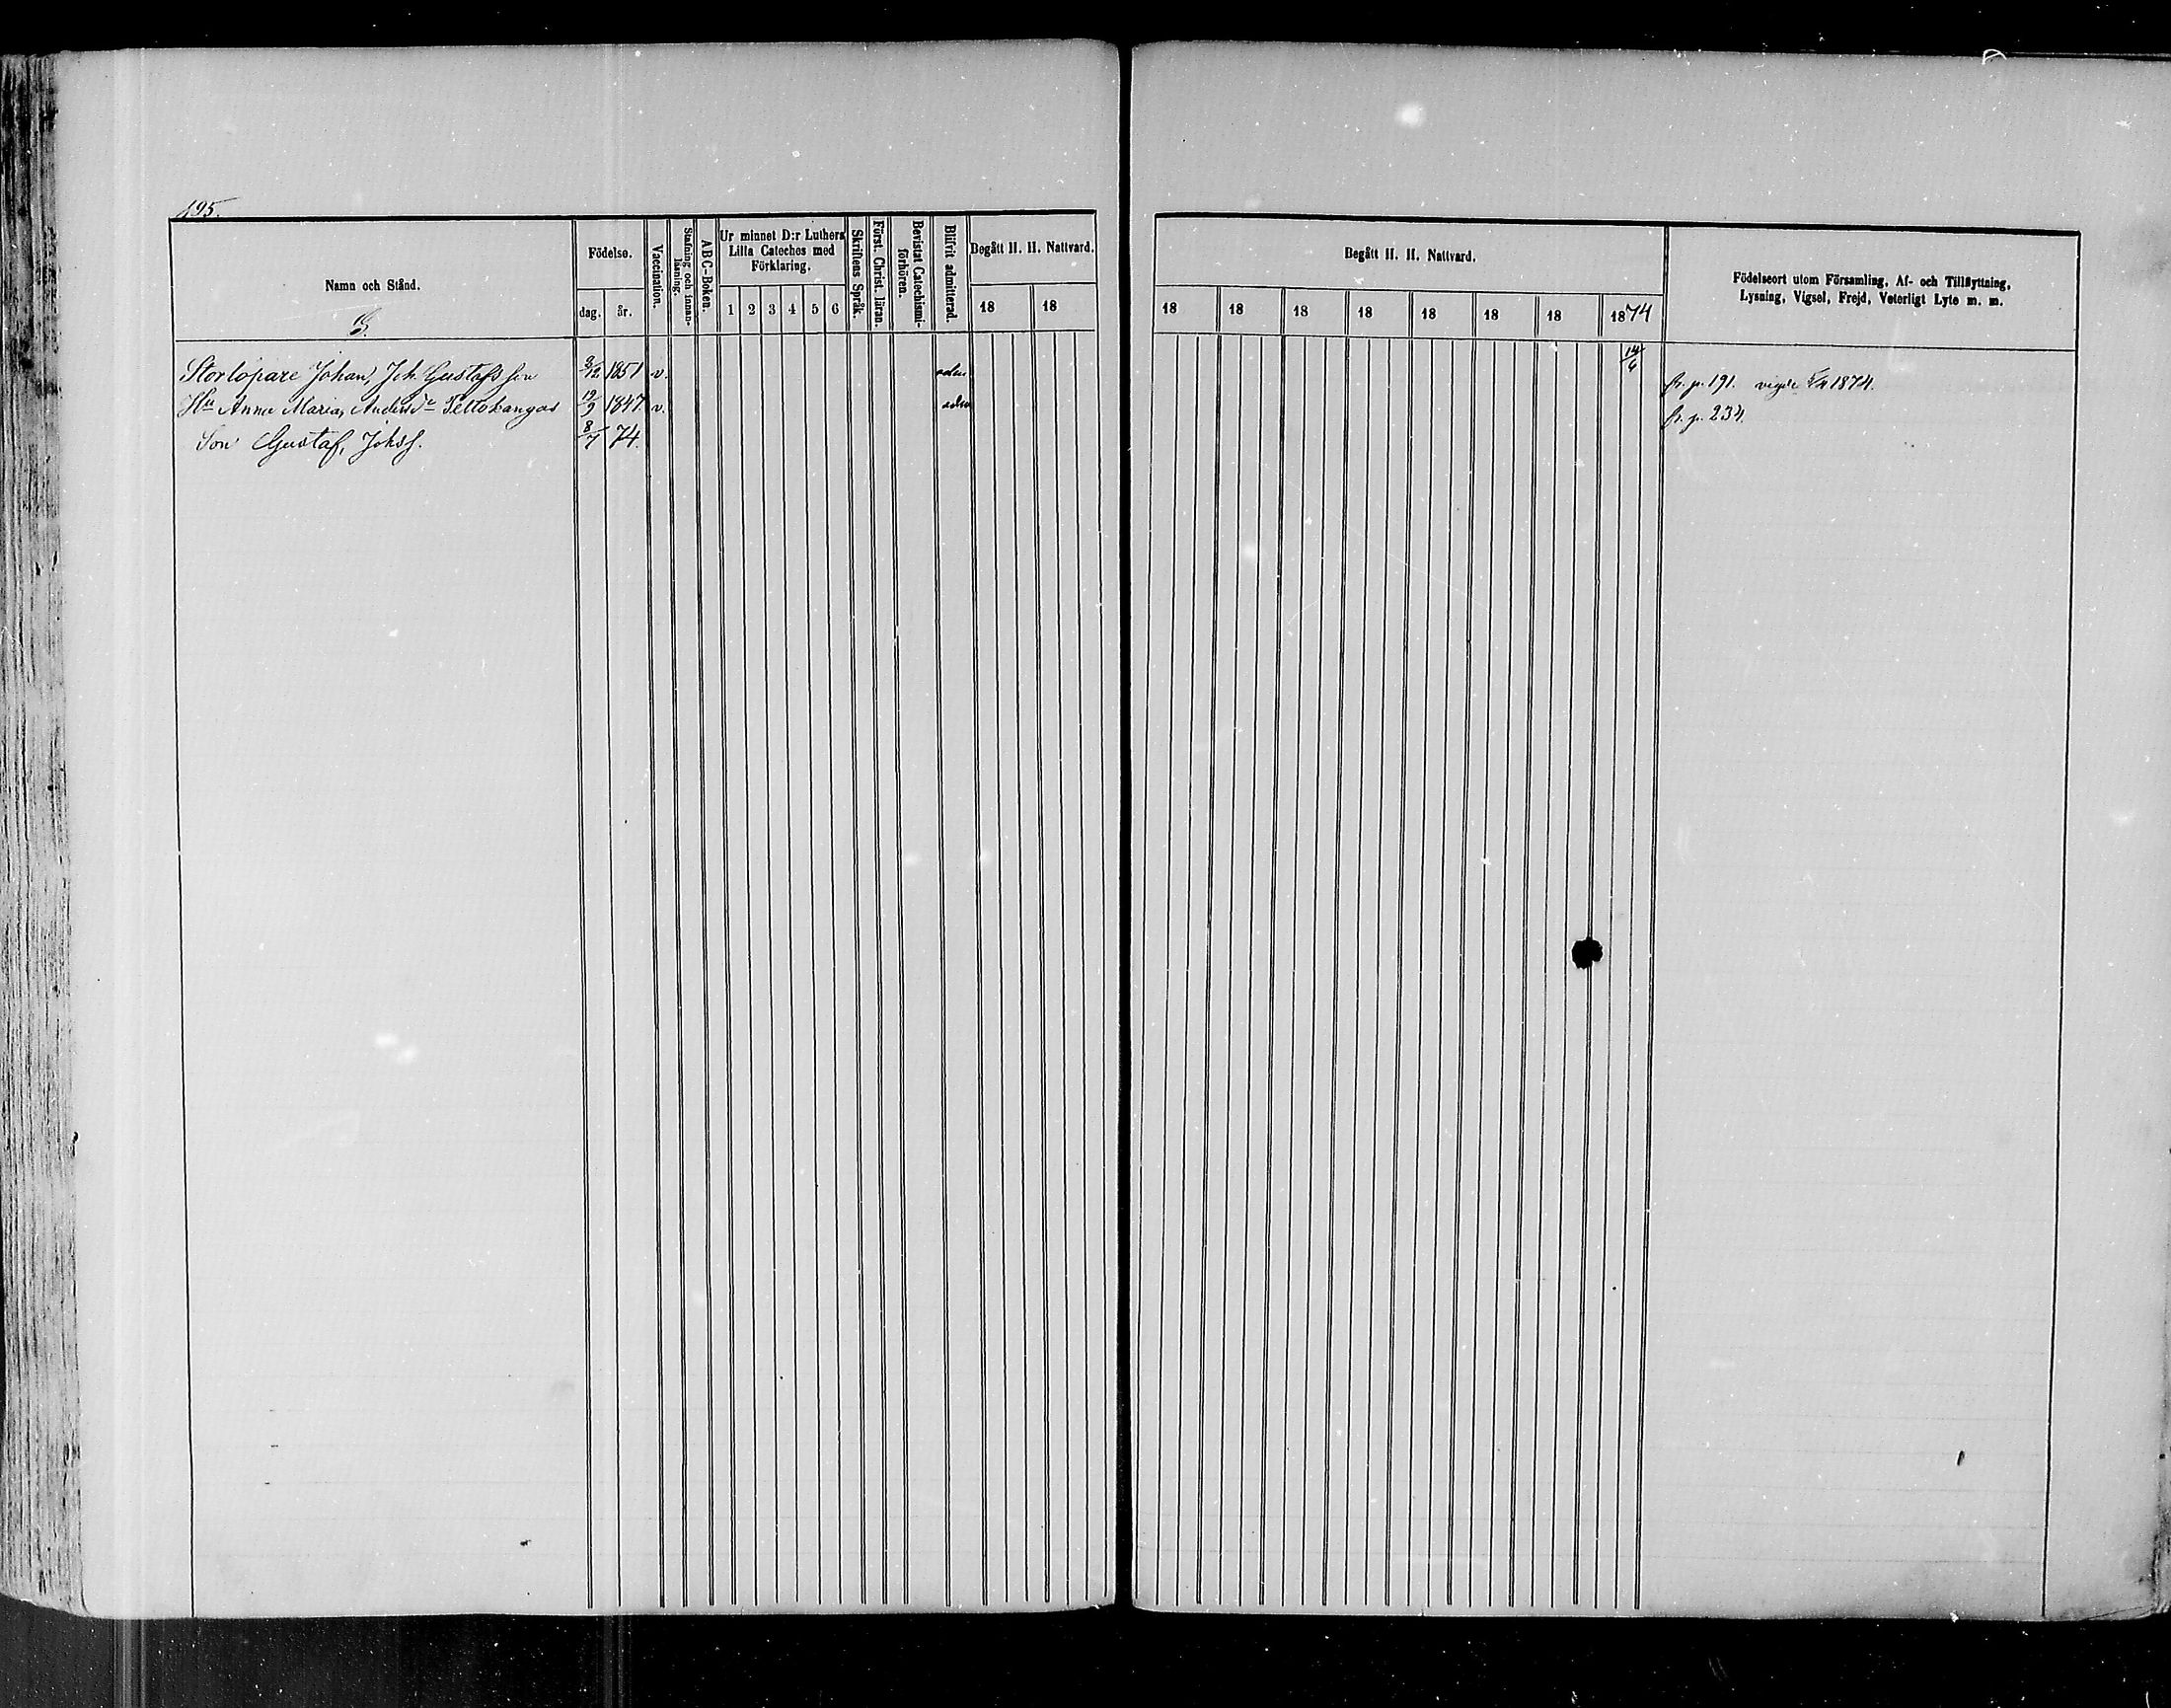 195.
Namn och Stånd.
Födelse.
dag. år.
Vaccination.
Stafning och innan-
läsning.
ABC-Boken.
Ur minnet D:r Luthers
Lilla Cateches med
Förklaring.
1 2 3 4 5 6
Skriftens Språk.
Först. Christ. läran.
Bevistat Catechismi-
förhören.
Blifvit admitterad.
Begått H. H. Nattvard.
18 18
Begått H. H. Nattvard.
18 18 18 18 18 18 18 1874
Födelseort utom Församling, Af- och Tillflyttning,
Lysning, Vigsel, Frejd, Veterligt Lyte m. m.
Storlöpare Johan, Joh. Gustafsson 3/12 1851 v. adm 14/6 fr. p. 191. vigde 1874.
Hu Anna Maria, Andersdr Peltokangas 19/9 1847 v. adm fr. p. 234.
Son Gustaf, Johss. 8/7 74.